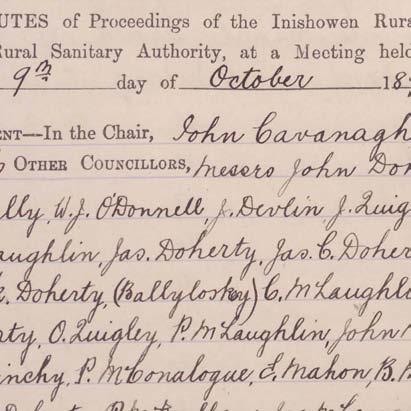 UTES of Proceedings of the Inishowen Rura
Rural Sanitary Authority, at a Meeting held
9th day of October 18
ENT—In the Chair, John Cavanagh
OTHER COUNCILLORS, Messrs John Do
lly, W.J. O'Donnell, J. Devlin J. Quig
aughlin, Jas. Doherty, Jas. C. Doher
Doherty, (Ballylosky) C. McLaughli
aty, O. Quigley, P. McLaughlin, John
inchy, P. McConalogue, E. Mahon, B.